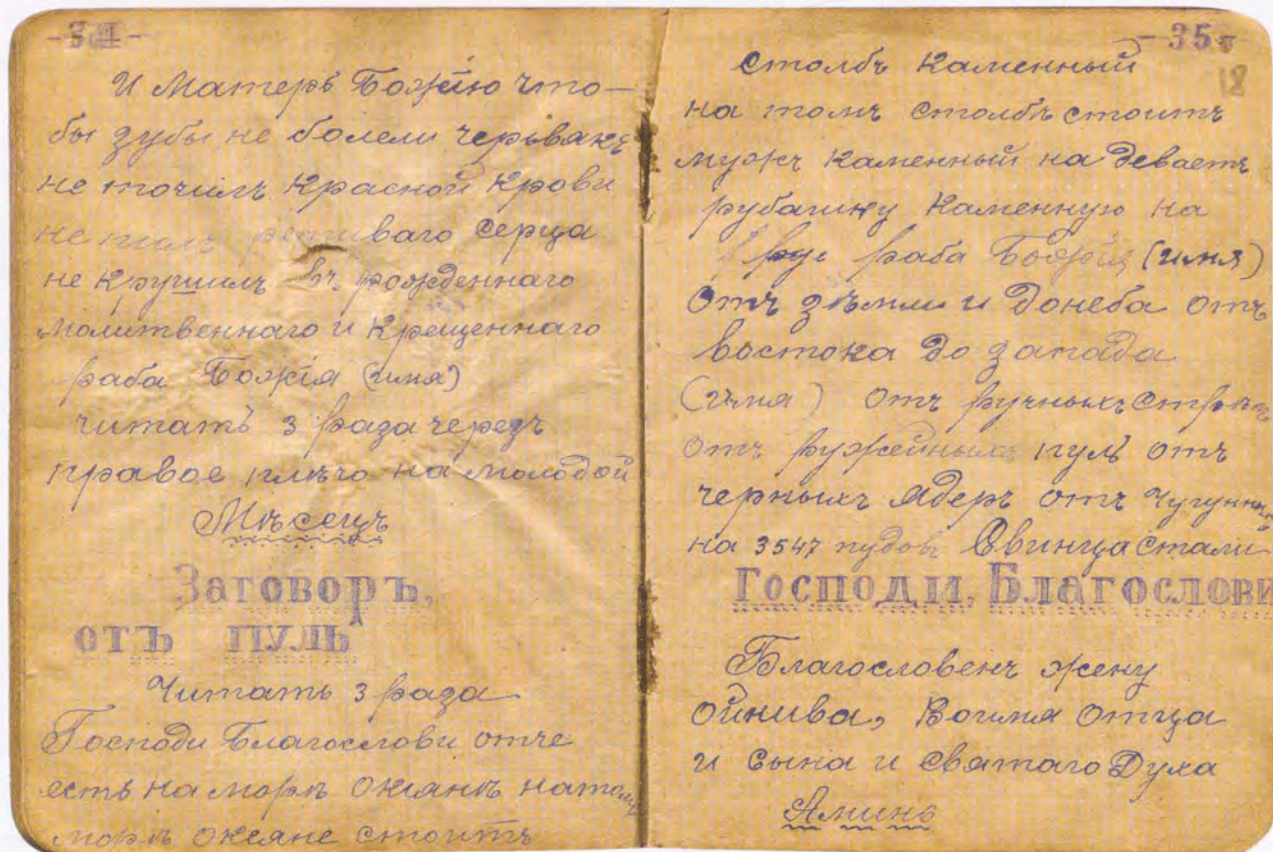 -34-
И Матерь Божію что-
бы зубы не болели черьвакъ
не точилъ Красной Крови
не пилъ ретиваго Серца
не Крушилъ въ рожденнаго
молитвеннаго и Крещеннаго
раба Божія (имя)
читать 3 раза черезъ
правое плѣчо на молодой
Мѣсецъ
Заговоръ,
отъ пуль
Читать 3 раза
Господи Благослови отче
есть на морѣ Океанѣ натомъ
морѣ океане стоитъ
-35-
18
столбъ Каменный
на томъ столбѣ стоитъ
мужъ каменный на деваетъ
рубашку Каменную на
раба Божія (имя)
Отъ зѣмли и донеба отъ
востока до запада
(имя) отъ ручныхъ стрелъ
отъ ружейныхъ пуль отъ
черныхъ Ядеръ отъ Чугунныхъ
на 3547 пудовъ Свинца стали
Господи, Благослови
Благословенъ жену
Ойнива, Воимя Отца
и Сына и Святаго Духа
Аминь